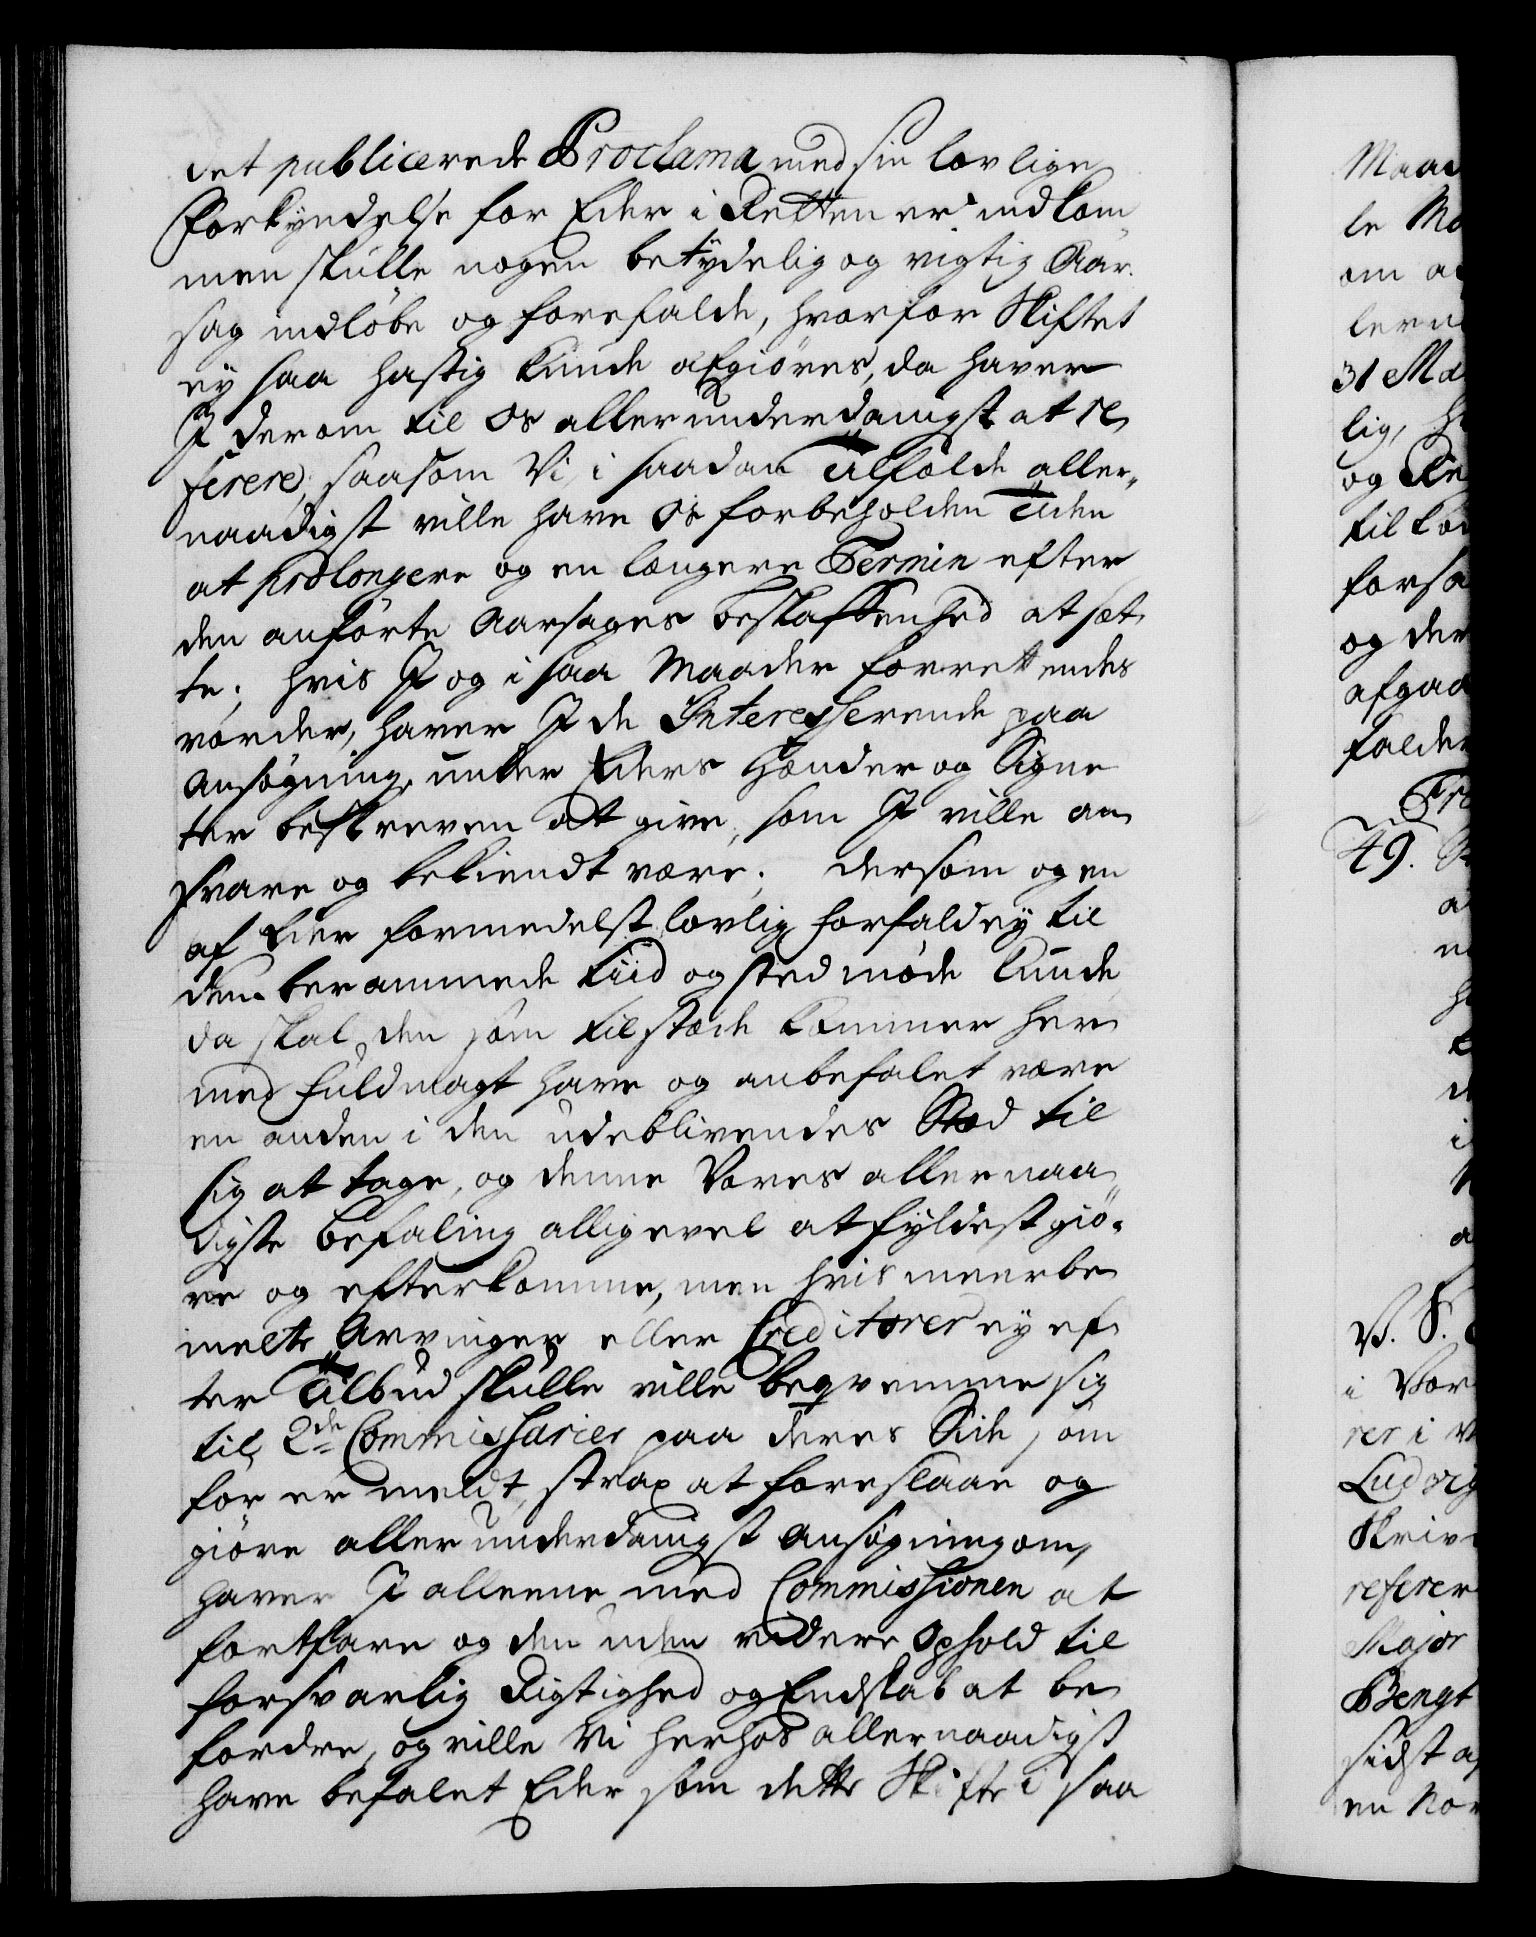 det publicerede Proclama med sin lovlige
Forkyndelse for Eder i Retten er indkom
men skulle nogen betydelig og vigtig Aar-
sag indløbe og forefalde, hvorfor Skiftet
ey saa hastig kunde afgiøres, da haver
I derom til Os allerunderdanigst at re
ferere, saasom Vi i saadan Tilfælde aller-
naadigst ville have Os forbeholden Tiden
at prolongere og en længere Termin efter
den anførte Aarsages Beskaffenhed at sæt
te; hvis I og i saa Maader forrettendes
vorder, haver I de Interesserende paa
Ansøgning under Eders Hænder og Signe
ter beskreven at give, som I ville an
svare og bekiendt være; dersom og en
af Eder formedelst lovlig Forfald ey til
den berammede Tiid og Sted møde kunde,
da skal den som tilstæde kommer her
med Fuldmagt have og anbefalet være
en anden i den udeblivendes Sted til
sig at tage, og denne Vores allernaa
digste Befaling alligevel at fyldestgiø-
re og efterkomme, men hvis meerbe
melte Arvinger eller Creditorer ey ef
ter Tilbud skulle ville beqvemme sig
til 2de Commissarier paa deres Side som
før er meldt, strax at foreslaae og
giøre allerunderdanigst Ansøgning om,
haver I alleene med Commissionen at
fortfare og den uden videre Ophold til
forsvarlig Rigtighed og Endskab at be
fordre, og ville Vi herhos allernaadigst
have befalet Eder som dette Skifte i saa
Maad
le Ma
om a
lern
31 Ma
lig, h
og Re
til ko
forsa
og der
afgaa
falde
Fr
49.
V. S.
i Vor
rer i v
Ludvig
Skriv
referer
Major
Bengt
sidst a
en Nor